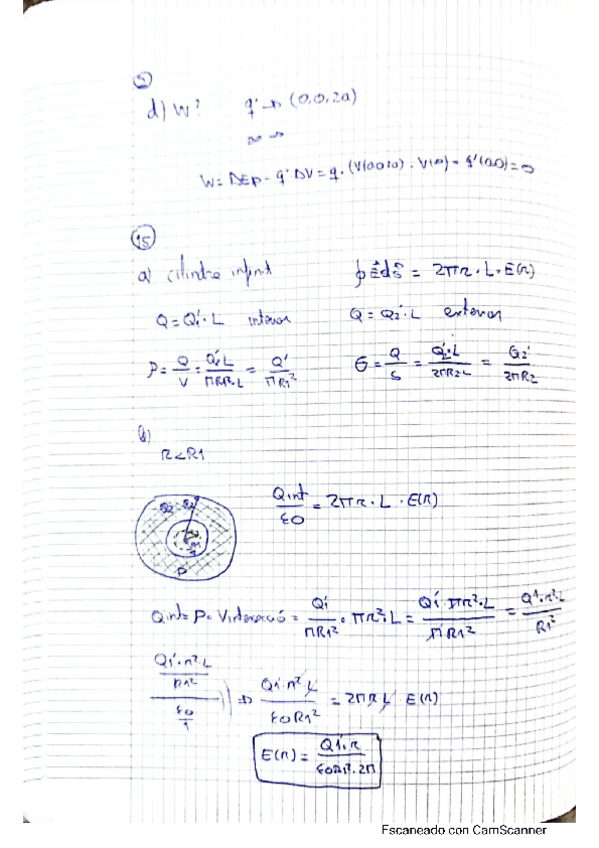 5
d) W? q' → (0,0,2a)
∞ →
W = ΔEp = q' ΔV = q · (V(0020) - V(∞) = q'(0.0) = 0
15
a) cilindre infinit ∮ E d s = 2πr · L · E(r)
Q = Q1' · L interior Q = Q2' · L exterior
ρ = Q/V = Q1'·L/πR1²·L = Q'/πR1² σ = Q/S = Q2'·L/2πR2L = Q2'/2πR2
b)
R<R1
Qint/ε0 = 2πr · L · E(r)
ρ
Qint = ρ · Vintersecció = Q1'/πR1² · πr²·L = Q1'·πr²·L/πR1² = Q1'·r²·L/R1²
Q1'·r²·L/R1² / ε0/1 ⇒ Q1'·r²·L/ε0R1² = 2πRL E(r)
E(r) = Q1'·r/ε0R1²·2π
Escaneado con CamScanner